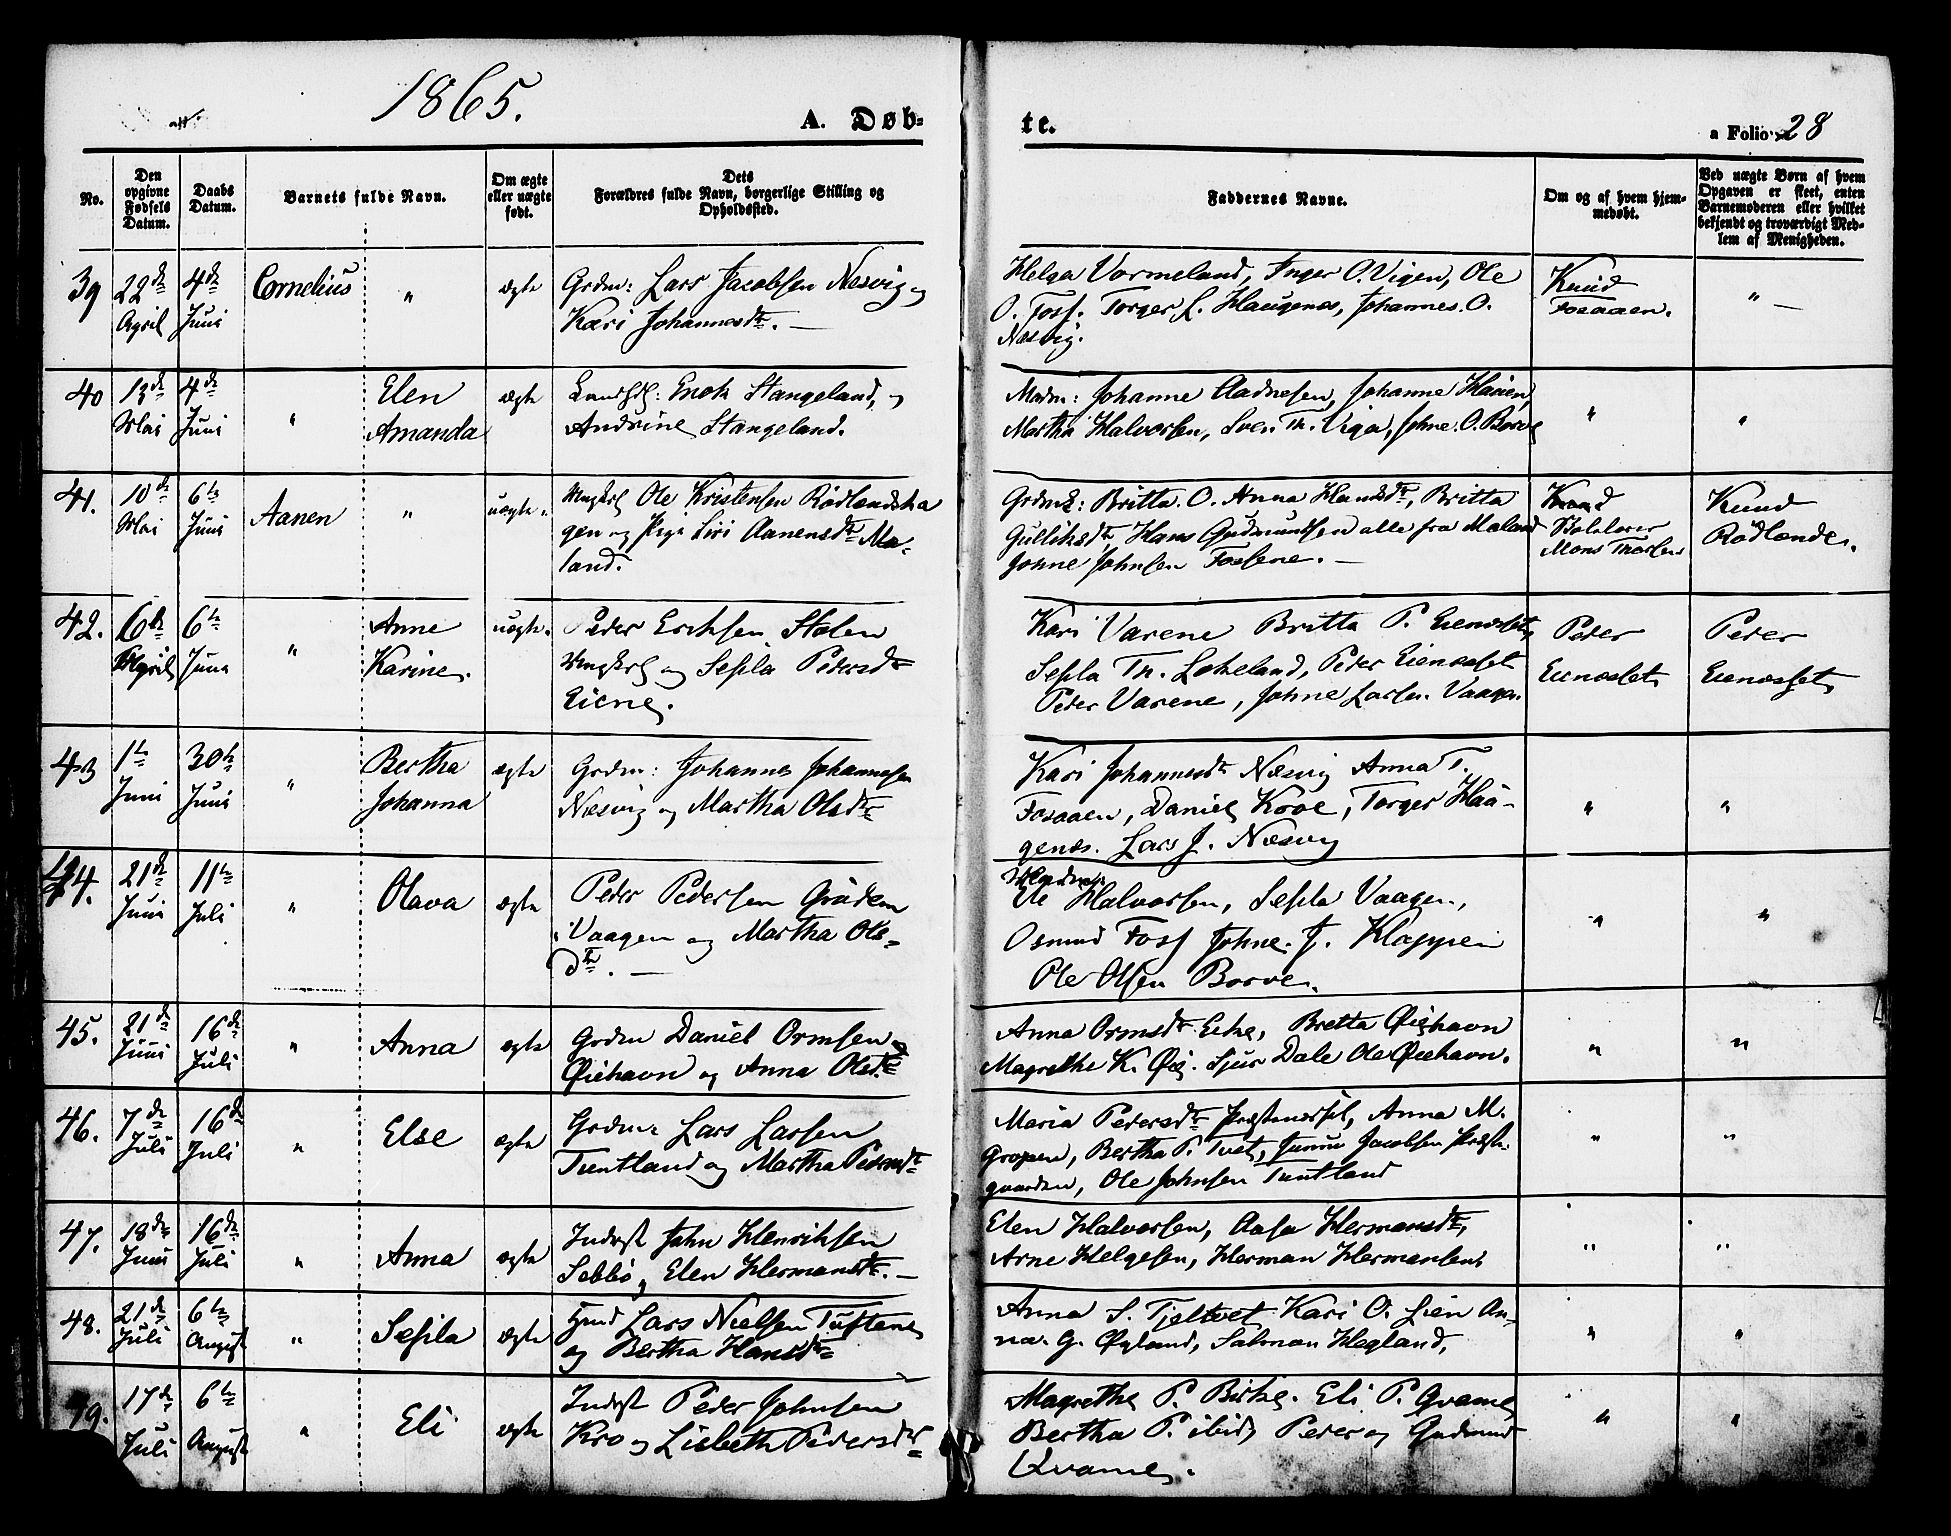 1865.
A. Døb-
te.
a Folio 28
No.
Den opgivne Fødsels Datum.
Daabs Datum.
Barnets fulde Navn.
Om ægte eller uægte født.
Dets Forældres fulde Navn, borgerlige Stilling og Opholdssted.
Faddernes Navne.
Om og af hvem hjemmedøbt.
Ved uægte Børn af hvem Opgaven er skeet, enten Barnemoderen eller hvilket bekjendt og troværdigt Medlem af Menigheden.
39 22de April 4de Juni Cornelius " ægte
Grdm: Lars Jacobsen Nesvig og
Kari Johannesdtr. —
Helga Vormeland, Inger O. Vigen, Ole
O. Foss. Torger L. Haugenes, Johannes O.
Næsvig.
Knud
Fosaaen.
" —
40 13de Mai 4de Juni " Elen Amanda ægte
Enok Stangeland, og
Andrine Stangeland.
Madm: Johanne Aadnesen, Johanne Haaien,
Martha Halvorsen, Sven Th. Viga, Johne O. Borve
" "
41. 10de Mai 6te Juni Aanen " uægte
Ungkrl Ole Kristensen Rødlandsha
gen og Pige Siri Aanensdtr Ma-
land.
Britta O. Anna Hansdtr, Britta
Gulliksdtr, Hans Gudmundsen alle fra Maland
Johne Johnsen Fossene. —
Mons Thorsen
Knud
Rødlande.
42. 6te April 6te Juni " Anne Karine. uægte.
Peder Eriksen Stølen
Ungkrl og Sesila Pedersdtr
Eiene.
Kari Varene Britta P. Eienæsset,
Sesila Th. Lokeland, Peder Eienæsset
Peter Varene, Johne Larsen Vaagen.
Peder
Eienæsset
Peder
Eienæsset
43 1te Juni 30te Juni " Bertha Johanna ægte
Grdm: Johannes Johannesen
Næsvig og Martha Olsdtr
Kari Johannesdtr Næsvig Anna T.
Fosaaen, Daniel Kroe, Torger Hau-
genæs. Lars J. Næsvig
" "
44. 21de Juni 11te Juli " Olava ægte
Peder Pedersen Grødem
i Vaagen og Martha Ols-
dtr. —
Halvorsen, Sesila Vaagen,
Osmund Foss Johne. J. Klappen
Ole Olsen Borve.
" "
45. 21de Juni 16de Juli " Anna ægte
Grdm Daniel Ormsen
Øiehavn og Anna Olsdtr
Anna Ormsdtr Eike, Bretta Øiehavn
Magrethe K. Øie. Sjur Dale Ole Øiehavn.
" "
46. 7de Juli 16de Juli " Else ægte
Grdm: Lars Larsen
Tuntland og Martha Pedersdtr
Maria Pedersdtr Anna M.
Gropen, Bertha P. Tvet, Jacobsen Præste-
gaarden, Ole Johnsen Tuntland
" "
47. 18de Juni 16de Juli " Anna ægte
Inderst John Henriksen
Sebbø og Elen Hermansdtr. —
Elen Halvorsen, Aasa Hermansdtr,
Arne Helgesen, Herman Hermansen.
" "
48. 21de Juli 6te August " Sesila ægte
Hmd Lars Nielsen Tuftene
og Bertha Hansdtr
Anna S. Tjeltvet, Kari O. Lien An-
na. G. Øgland, Salmon Hegland,
" "
49. 17de Juli 6te August " Eli ægte
Inderst Peder Johnsen
Kro og Lisbeth Pedersdtr
Magrethe P. Birke. Eli P. Qvame
Bertha P. ibid, Peder og Gudmund
Qvame.
" "